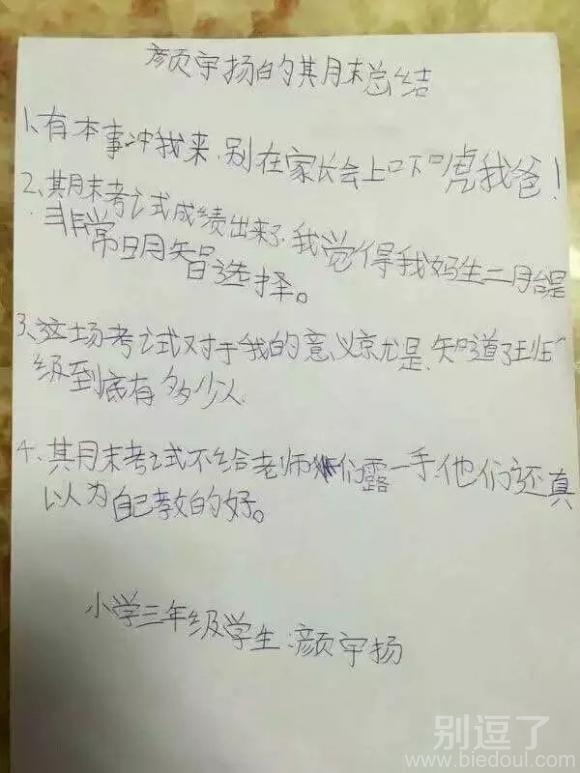 颜宇扬的期末总结
1、有本事冲我来,别在家长会上吓唬我爸!
2、期末考试成绩出来了,我觉得我妈生二胎是
非常明智选择。
3、这场考试对于我的意义就是,知道了班
级到底有多少人
4、期末考试不给老师们露一手,他们还真
以为自己教的好。
小学三年级学生:颜宇扬
别逗了
www.biedoul.com